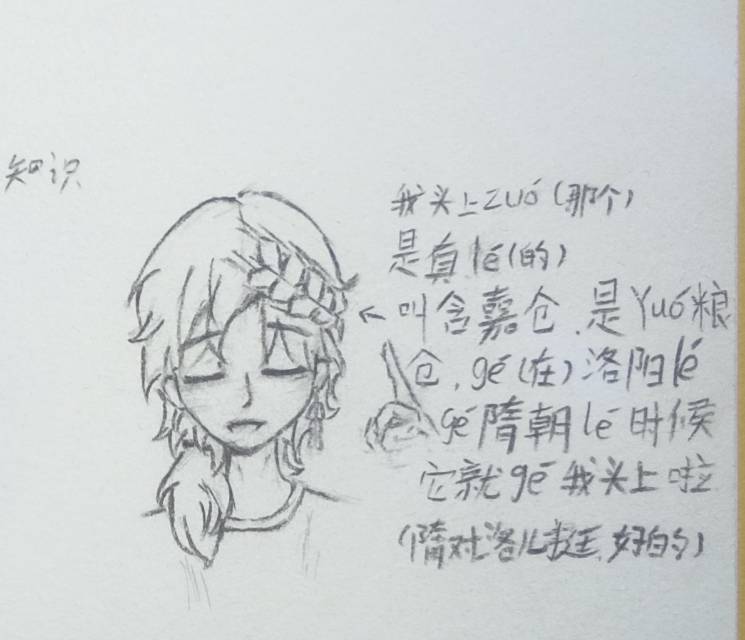 知识
我头上zuó(那个)
是真lé(的)
叫含嘉仓,是Yuó粮
仓,gé(在)洛阳lé
gé隋朝lé时候
它就gé我头上啦
(隋对洛儿挺好的)